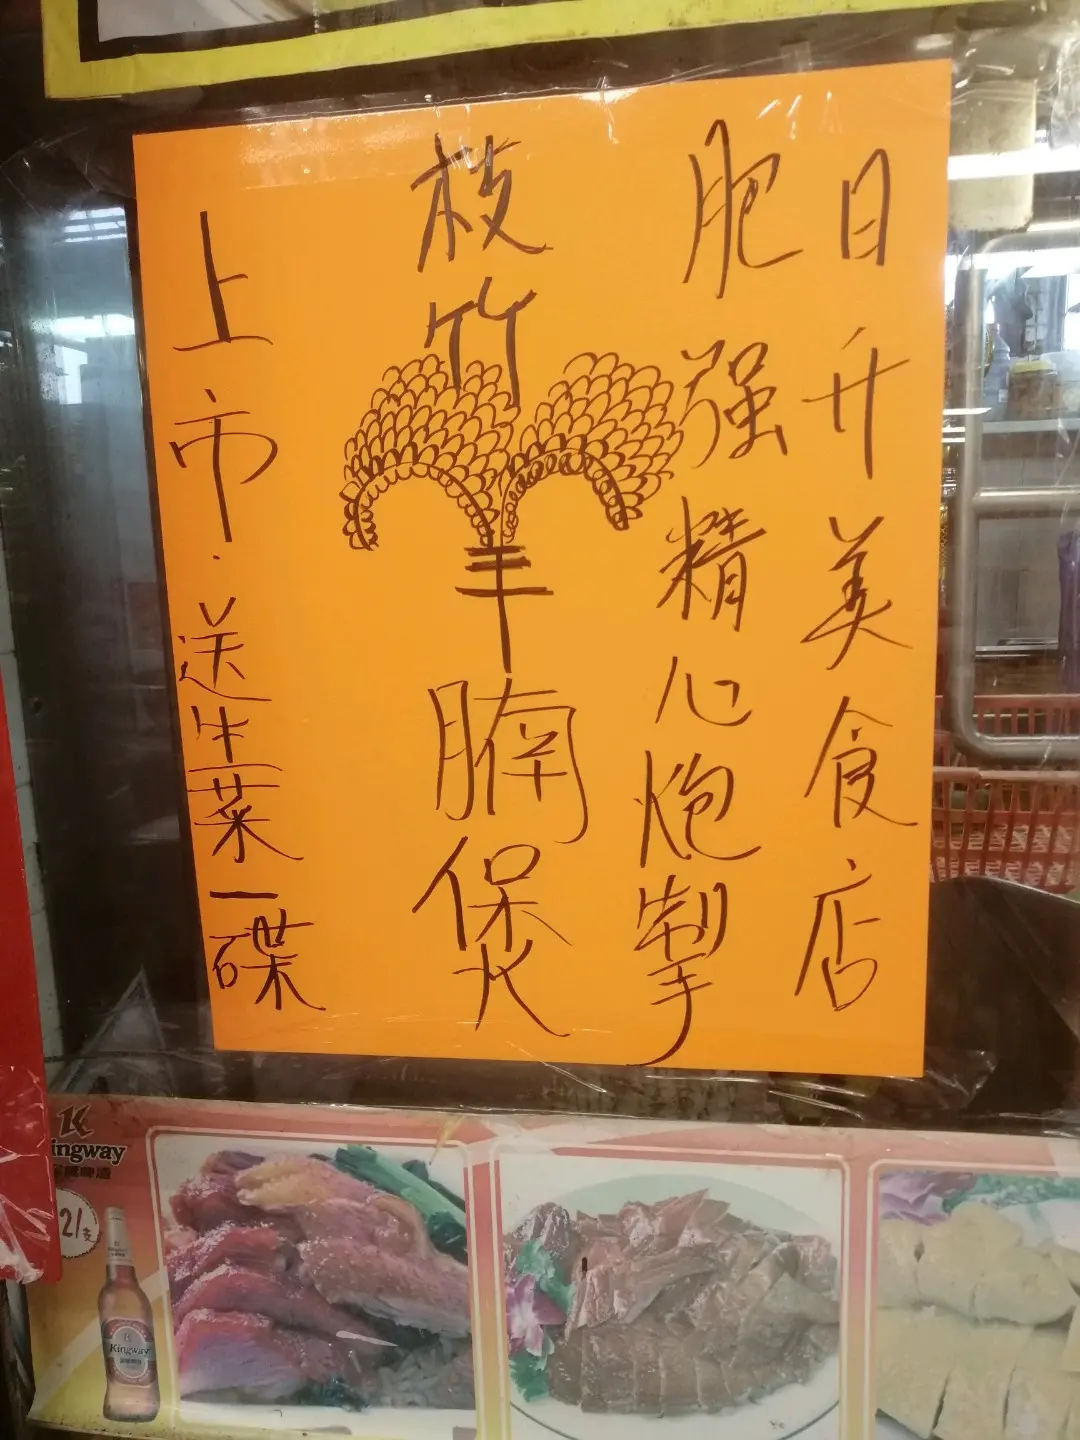 日升美食店
肥强精心炮掣
枝竹羊腩煲
上市·送生菜一碟
Kingway
21/支
Kingway